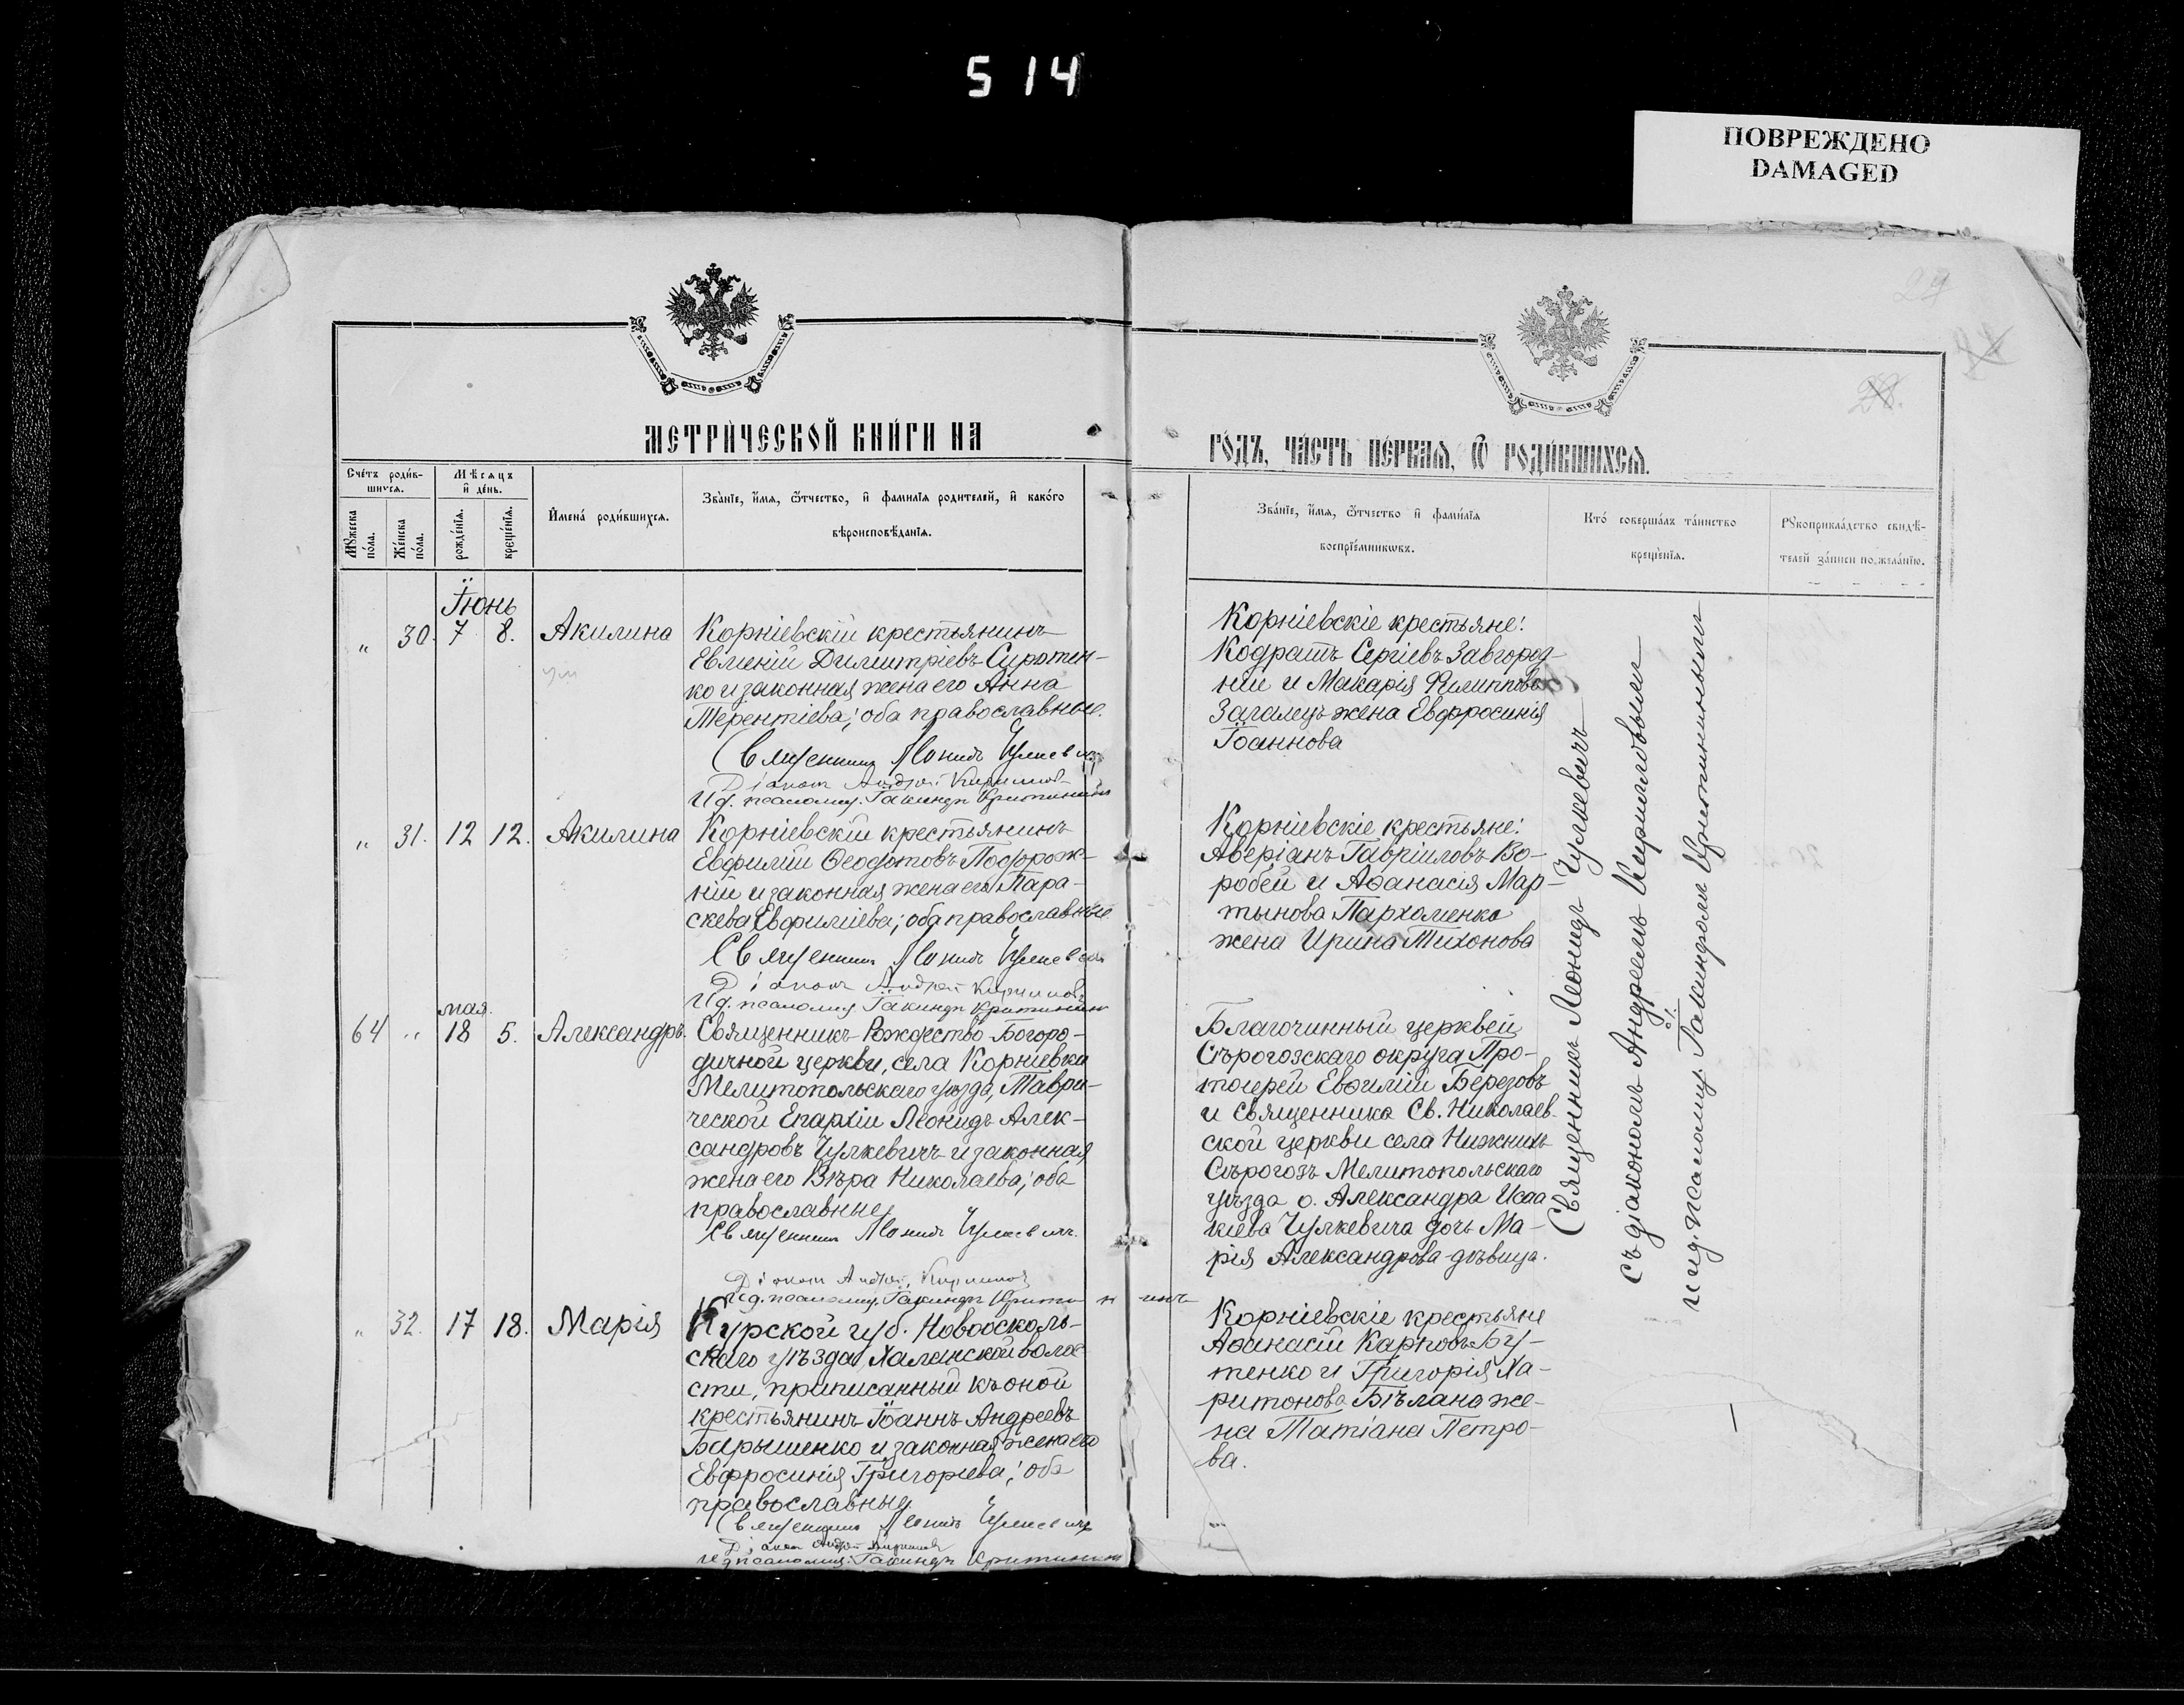 514
ПОВРЕЖДЕНО
DAMAGED
МЕТРИ́ЧЕСКОЙ КНИ́ГИ НА
ГО́ДЪ, ЧА́СТЬ ПЕ́РВАЯ, Ѿ РОДИ́ВШИХСЯ.
Сче́тъ роди́в-
шихся.
Мѣсяцъ
и де́нь.
Мꙋжеска
по́ла.
Же́нска
по́ла.
рожде́нїѧ.
креще́нїѧ.
Имена́ роди́вшихсѧ.
Зва́нїе, и́мѧ, ѻ́тчество, и фами́лїѧ родителей, и како́го
вѣроисповѣ́данїѧ.
Зва́нїе, и́мѧ, ѻ́тчество и фами́лїѧ
воспрїе́мникѡвъ.
Кто́ соверша́лъ та́инство
креще́нїѧ.
Рꙋкоприкла́дство свидѣ́-
телей за́писи по жела́нїю.
Іюнь
" 30. 7 8. Акилина
Корніевскій крестьянинъ
Евменій Димитріевъ Суротен-
ко и законная жена его Анна
Терентіева; оба православные.
Священникъ Леонидъ Чулкевичъ
Діаконъ Андрей Кириловъ
И.д. псаломщ. Іакинфъ Критининъ
Корніевскіе крестьяне:
Кодратъ Сергіевъ Завгород-
ній и Макарія Филиппова
Загалецъ жена Евфросинія
Іоаннова
" 31. 12 12. Акилина
Корніевскій крестьянинъ
Евфимій Ѳеодотовъ Подорож-
ній и законная жена его Пара-
скева Евфиміева; оба православные
Священникъ Леонидъ Чулкевичъ
Діаконъ Андрей Кириловъ
И.д. псаломщ. Іакинфъ Критининъ
Корніевскіе крестьяне:
Аверіанъ Гавріиловъ Во-
робей и Аѳанасія Мар-
тынова Пархоменка
жена Ирина Тихонова
мая.
64 " 18 5. Александръ.
Священникъ Рождество-Богоро-
дичной церкви, села Корніевки
Мелитопольскаго уѣзда, Таври-
ческой Епархіи Леонидъ Алек-
сандровъ Чулкевичъ и законная
жена его Вѣра Николаева; оба
православные
Священникъ Леонидъ Чулкевичъ.
Діаконъ Андрей Кириловъ
И.д. псаломщ. Іакинфъ Критининъ
Благочинный церквей
Сѣрогозскаго округа Про-
тоіерей Евѳимій Березовъ
и священника Св. Николаев-
ской церкви села Нижнихъ
Сѣрогозъ Мелитопольскаго
уѣзда о. Александра Исаа-
кіева Чулкевича дочь Ма-
рія Александрова-дѣвица.
" 32. 17 18. Марія
Курской губ. Новоосколь-
скаго уѣзда, Халанской воло-
сти, приписанный къ оной
крестьянинъ Іоаннъ Андреевъ
Барышенко и законная жена его
Евфросинія Григоріева; оба
православные
Священникъ Леонидъ Чулкевичъ
Діаконъ Андрей Кириловъ
И.д. псаломщ. Іакинфъ Критининъ
Корніевскіе крестьяне
Аѳанасій Карповъ Бу-
тенко и Григорія Ха-
ритонова Бѣлана же-
на Татіана Петро-
ва.
Священникъ Леонидъ Чулкевичъ
съ діакономъ Андреемъ Кириловымъ
и и.д. псаломщ. Іакинфомъ Критининымъ